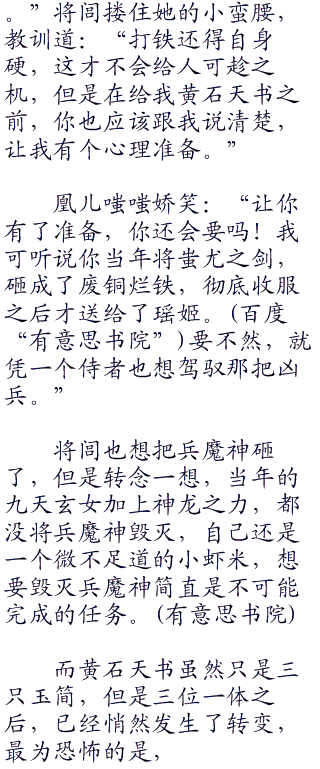 。”将闾搂住她的小蛮腰，
教训道：“打铁还得自身
硬，这才不会给人可趁之
机，但是在给我黄石天书之
前，你也应该跟我说清楚，
让我有个心理准备。”
凰儿嗤嗤娇笑：“让你
有了准备，你还会要吗！我
可听说你当年将蚩尤之剑，
砸成了废铜烂铁，彻底收服
之后才送给了瑶姬。(百度
“有意思书院”)要不然，就
凭一个侍者也想驾驭那把凶
兵。”
将闾也想把兵魔神砸
了，但是转念一想，当年的
九天玄女加上神龙之力，都
没将兵魔神毁灭，自己还是
一个微不足道的小虾米，想
要毁灭兵魔神简直是不可能
完成的任务。(有意思书院)
而黄石天书虽然只是三
只玉简，但是三位一体之
后，已经悄然发生了转变，
最为恐怖的是，